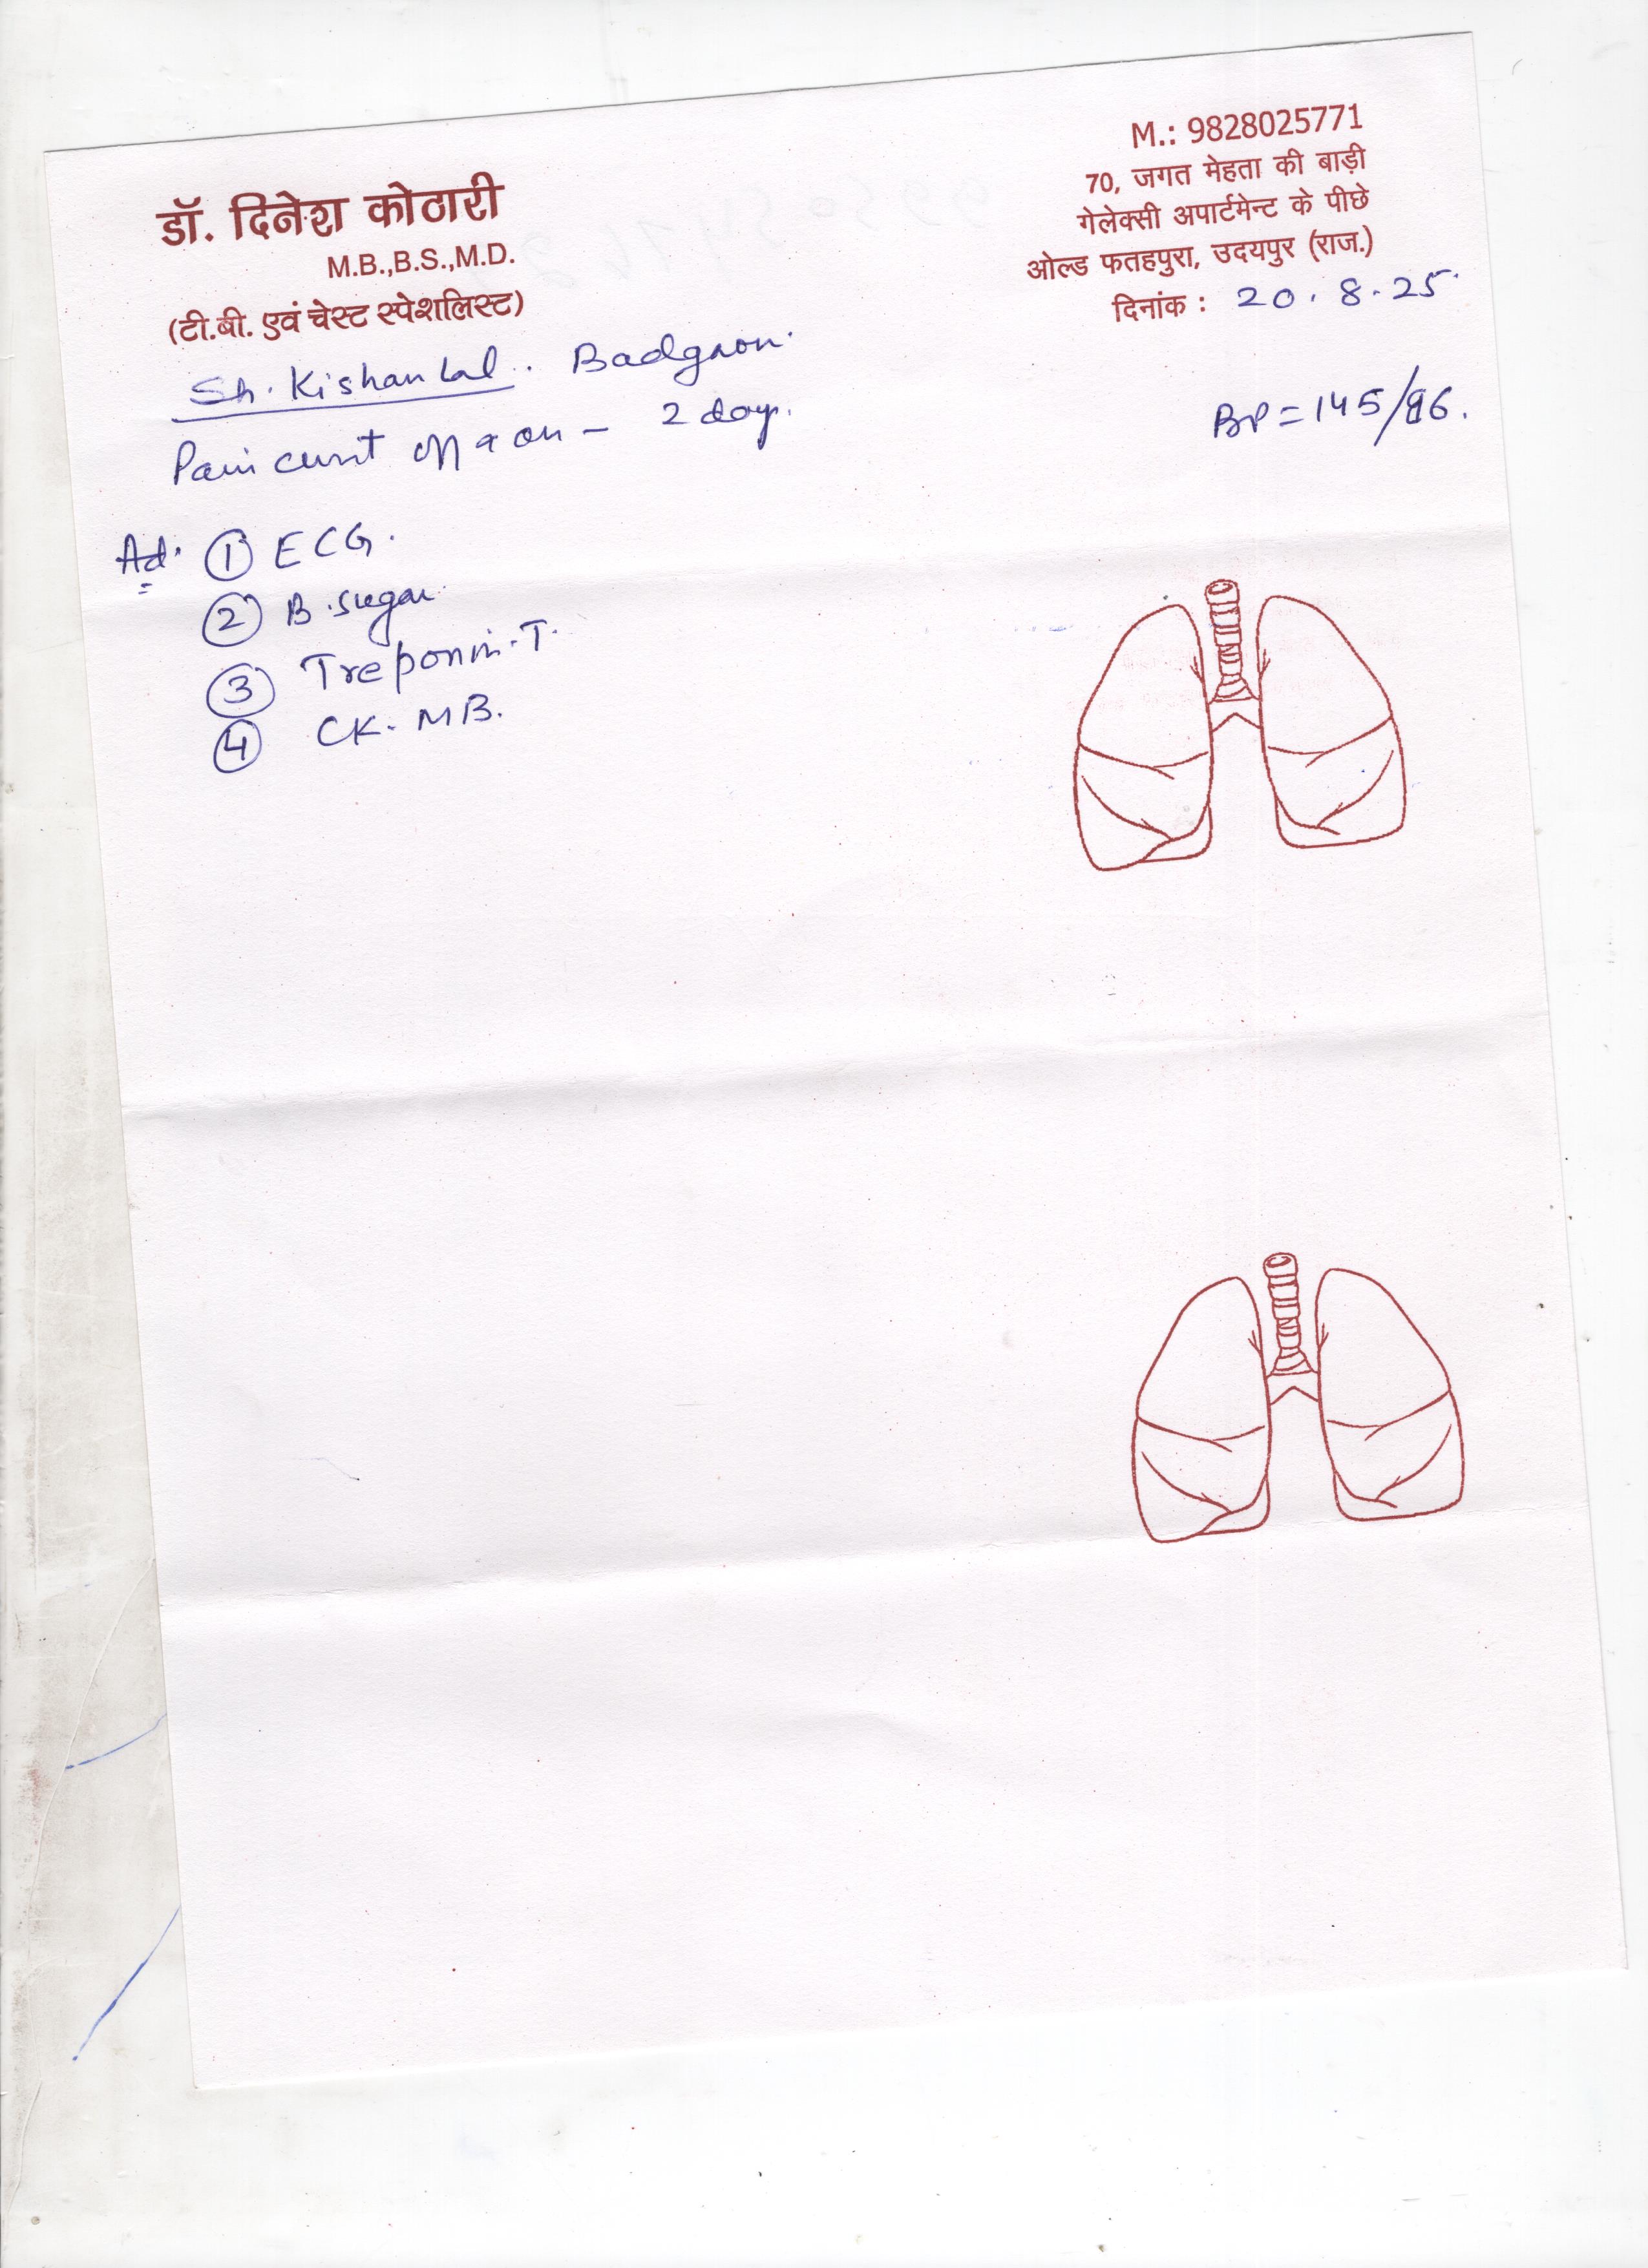 डॉ. दिनेश कोठारी
M.B.,B.S.,M.D.
(टी.बी. एवं चेस्ट स्पेशलिस्ट)
M.: 9828025771
70, जगत मेहता की बाड़ी
गेलेक्सी अपार्टमेन्ट के पीछे
ओल्ड फतहपुरा, उदयपुर (राज.)
दिनांक : 20.8.25
Sh. Kishan Lal. Badgaon.
BP = 145/
Pain off & on - 2 day.
Ad. ① ECG.
② B.sugar
③ Treponin.T.
④ CK-MB.